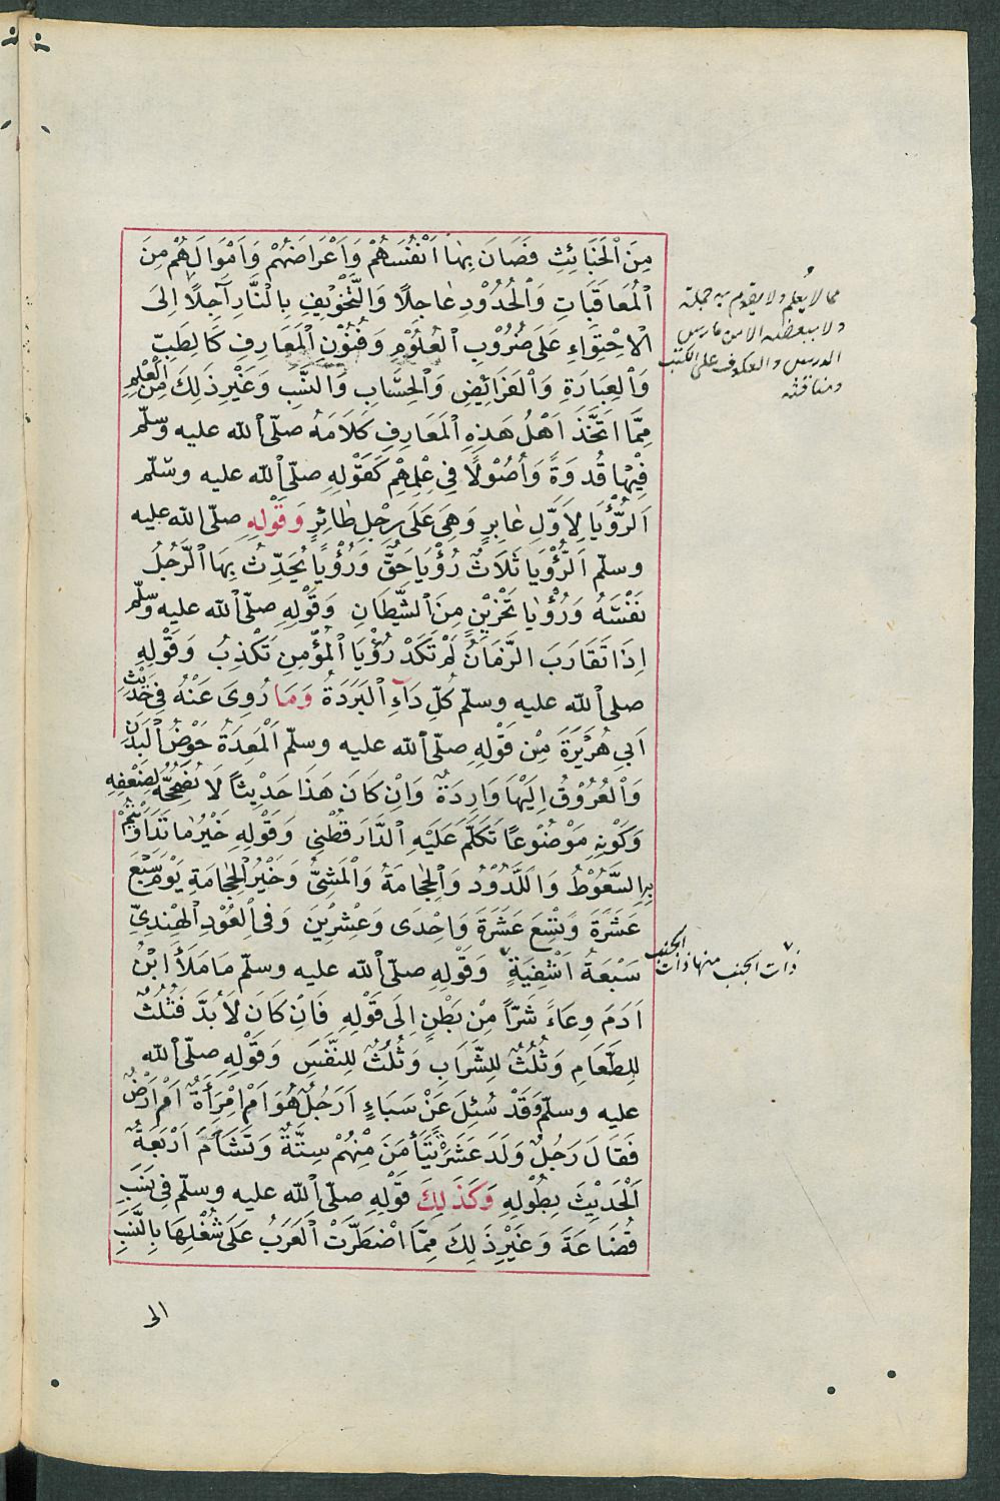 مِنَ الْخَبَائِثِ فَصَانَ بِهَا اَنْفُسَهُمْ وَاَعْرَاضَهُمْ وَاَمْوَالَهُمْ مِنَ
الْمُعَاقَبَاتِ وَالْحُدُوْدِ عَاجِلًا وَالتَّخْوِيْفِ بِالنَّارِ آجِلًا اِلَى
الْاِحْتِوَاءِ عَلَى ضُرُوْبِ الْعُلُوْمِ وَفُنُوْنِ الْمَعَارِفِ كَالطِّبِّ
وَالْعِبَارَةِ وَالْفَرَائِضِ وَالْحِسَابِ وَالنَّسَبِ وَغَيْرِ ذَلِكَ مِنَ الْعِلْمِ
مِمَّا اتَّخَذَ اَهْلُ هَذِهِ الْمَعَارِفِ كَلَامَهُ صلّى الله عليه وسلّم
فِيْهَا قُدْوَةً وَاُصُوْلًا فِى عِلْمِهِمْ كَقَوْلِهِ صلّى الله عليه وسلّم
اَلرُّؤْيَا لِاَوَّلِ عَابِرٍ وَهِىَ عَلَى رِجْلِ طَائِرٍ وَقَوْلِهِ صلّى الله عليه
وسلّم اَلرُّؤْيَا ثَلَاثٌ رُؤْيَا حَقٌّ وَرُؤْيَا يُحَدِّثُ بِهَا الرَّجُلُ
نَفْسَهُ وَرُؤْيَا تَحْزِيْنٍ مِنَ الشَّيْطَانِ وَقَوْلِهِ صلّى الله عليه وسلّم
اِذَا تَقَارَبَ الزَّمَانُ لَمْ تَكَدْ رُؤْيَا الْمُؤْمِنِ تَكْذِبُ وَقَوْلِهِ
صلى الله عليه وسلّم كُلِّ دَآءٍ الْبَرَدَةُ وَمَا رُوِىَ عَنْهُ فِى حَدِيْثِ
اَبِي هُرَيْرَةَ مِنْ قَوْلِهِ صلّى الله عليه وسلّم اَلْمَعِدَةُ حَوْضُ الْبَدَنِ
وَالْعُرُوْقُ اِلَيْهَا وَارِدَةٌ وَاِنْ كَانَ هَذَا حَدِيْثًا لَا نُصَحِّحُهُ لِضَعْفِهِ
وَكَوْنِهِ مَوْضُوْعًا تَكَلَّمَ عَلَيْهِ الدَّارَقُطْنِى وَقَوْلِهِ خَيْرُ مَا تَدَاوَيْتُمْ
بِهِ السَّعُوْطُ وَاللَّدُوْدُ وَالْحِجَامَةُ وَالْمَشِىُّ وَخَيْرُ الْحِجَامَةِ يَوْمَ سَبْعَ
عَشَرَةَ وَتِسْعَ عَشَرَةَ وَاِحْدَى وَعِشْرِيْنَ وَفِى الْعُوْدِ الْهِنْدِىِّ
سَبْعَةُ اَشْفِيَةٍ وَقَوْلِهِ صلّى الله عليه وسلّم مَا مَلَأَ ابْنُ
اَدَمَ وِعَاءً شَرًّا مِنْ بَطْنٍ اِلَى قَوْلِهِ فَاِنْ كَانَ لَا بُدَّ فَثُلُثٌ
لِلطَّعَامِ وَثُلُثٌ لِلشَّرَابِ وَثُلُثٌ لِلنَّفَسِ وَقَوْلِهِ صلّى الله
عليه وسلّم وَقَدْ سُئِلَ عَنْ سَبَاءٍ اَرَجُلٌ هُوَ اَمْ اِمْرَأَةٌ اَمْ اَرْضٌ
فَقَالَ رَجُلٌ وَلَدَ عَشَرَةً تَيَامَنَ مِنْهُمْ سِتَّةٌ وَتَشَاَمَ اَرْبَعَةٌ
اَلْحَدِيْثَ بِطُوْلِهِ وَكَذَلِكَ قَوْلِهِ صلّى الله عليه وسلّم فِى نَسَبِ
قُضَاعَةَ وَغَيْرِ ذَلِكَ مِمَّا اضْطَرَّتْ الْعَرَبُ عَلَى شُغْلِهَا بِالنَّسَبِ
الى
مما لا يُعلم ولا يقوم به جملة
ولا ببعضه الا من مارس
الدرس والعكوف على الكتب
ومثافنة
ذات الجنب منها ذات الجنب